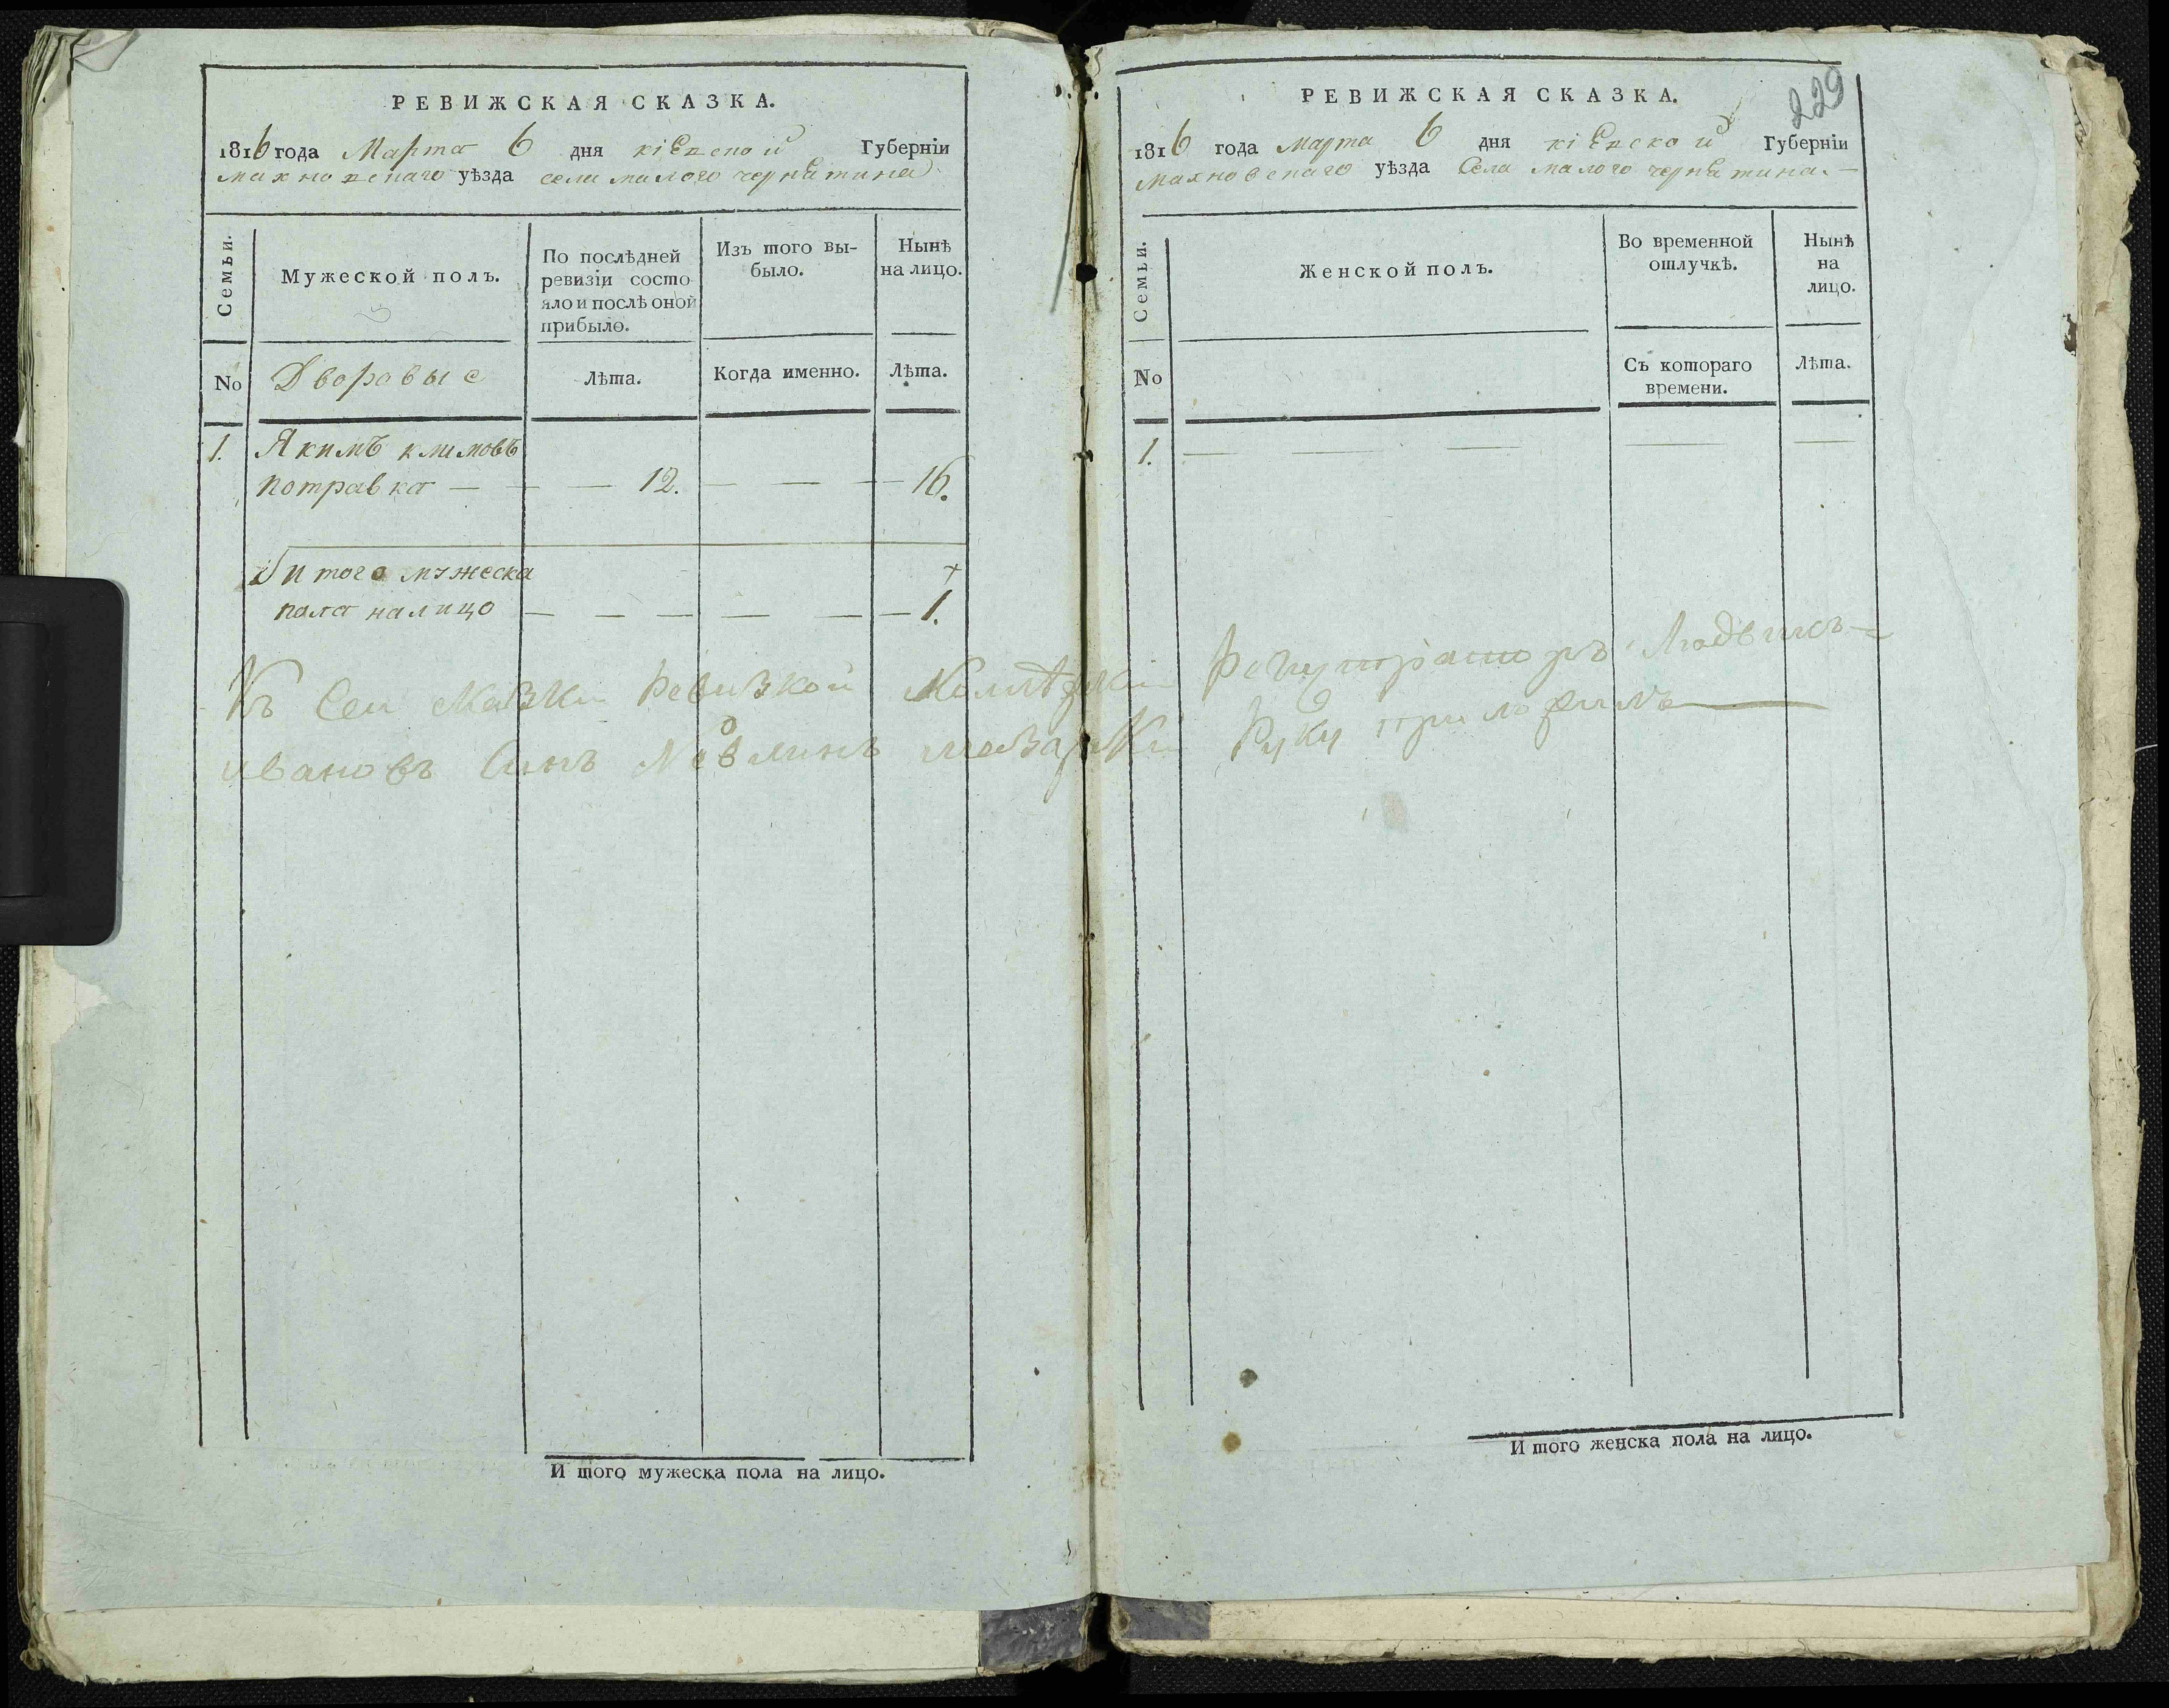 РЕВИЖСКАЯ СКАЗКА.
1816 года Марта 6 дня кіевской Губерніи
махновскаго уѣзда села малого чернятина
Семьи.
Мужеской полъ.
По послѣдней
ревизіи состо
яло и послѣ оной
прибыло.
Изъ того вы-
было.
Нынѣ
на лицо.
No
Дворовые
Лѣта.
Когда именно.
Лѣта.
1. Якимъ климовъ
потравка — — — 12. — — — 16.
Итого мужеска
пола налицо — — — — — — 1.
И того мужеска пола на лицо.
229
РЕВИЖСКАЯ СКАЗКА.
1816 года марта 6 дня кіевской Губерніи
Махновскаго уѣзда Села малого чернятина. —
Семьи.
Женской полъ.
Во временной
отлучкѣ.
Нынѣ
на
лицо.
No
Съ котораго
времени.
Лѣта.
1. — — — — —
Къ Сеи скаВки РевиЗкой Регистраторъ Людвикъ
ивановъ Синъ Руку приложилъ
И того женска пола на лицо.